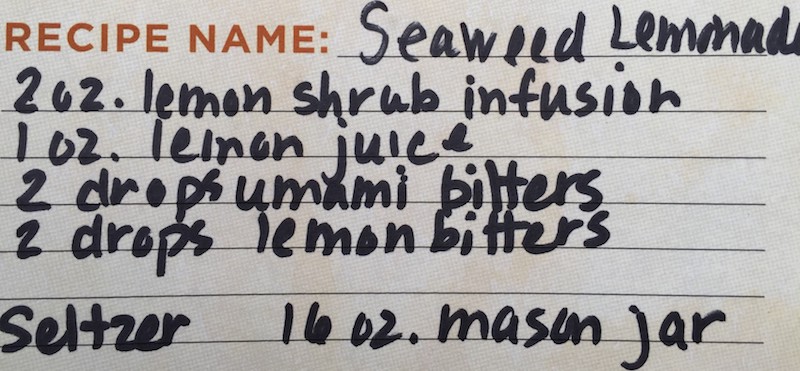 RECIPE NAME: Seaweed Lemonade
2 oz. lemon shrub infusion
1 oz. lemon juice
2 drops umami bitters
2 drops lemon bitters
Seltzer 16 oz. mason jar